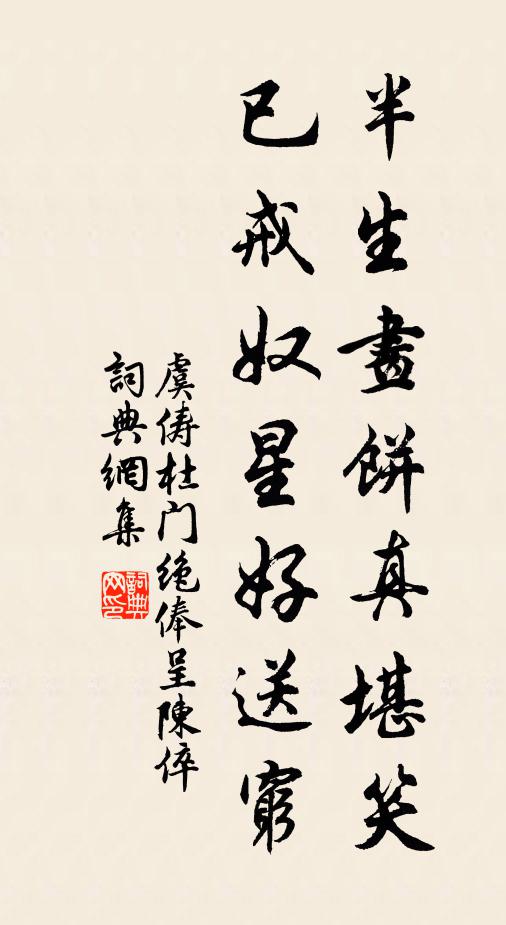 半生畫餅真堪笑
已戒奴星好送窮
虞俦杜门绝俸呈陳倅
詞典網集
詞典网印